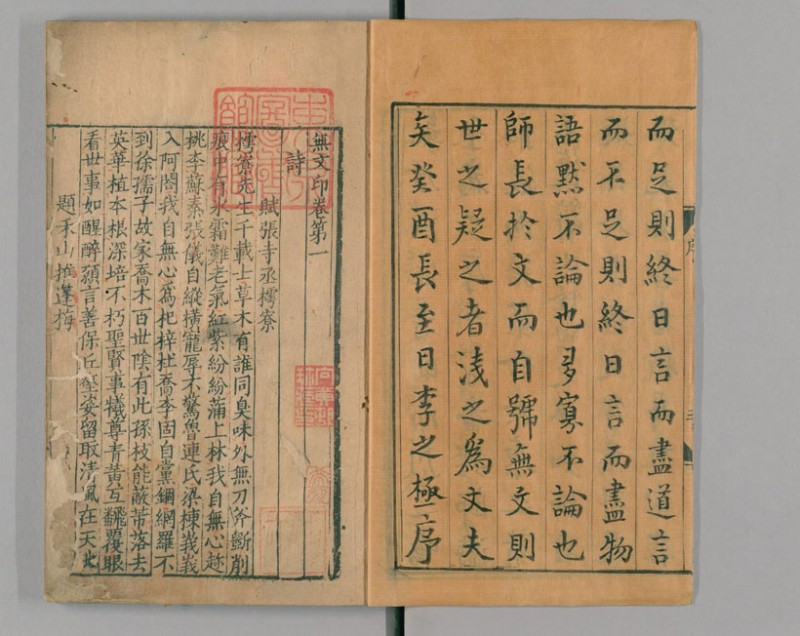 而足則終日言而盡道言
而不足則終日言而盡物
語默不論也多寡不論也
師長於文而自號無文則
世之疑之者浅之為文夫
矣癸酉長至日李之極序
無文印卷第一
詩
賦張寺丞樗寮
樗寮先生千載士草木有誰同臭味外無刀斧斷削
痕中有氷霜難老氣紅紫紛紛蒲上林我自無心趂
桃李蘇秦張儀自縱橫寵辱不驚魯連氏梁棟峩峩
入阿閣我自無心為杞梓杜喬李固自黨錮網羅不
到徐孺子故家喬木百世陰有此孫枝能蔽芾落去
英華植本根深培不朽聖賢事犧尊青黃互飜覆眼
看世事如醒醉願言善保丘壑姿留取清風在天地
題禾山推蓬梅